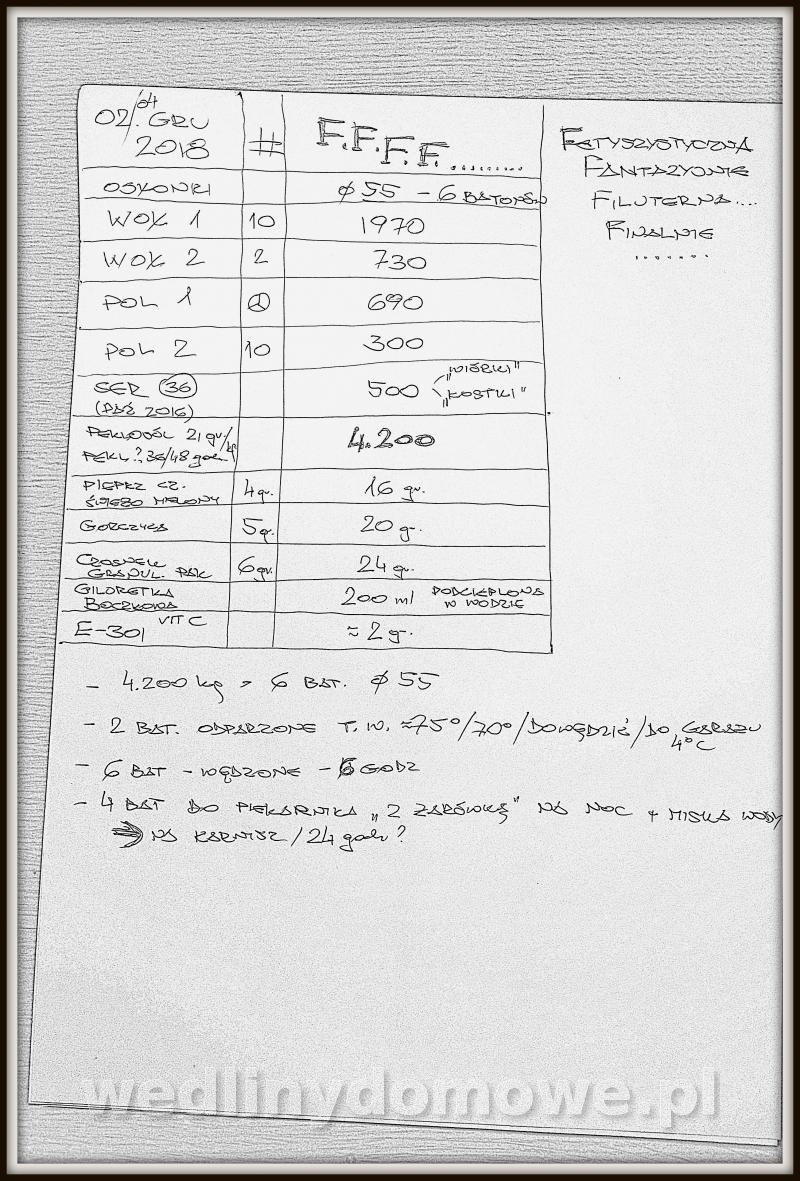 02/04 GRU
2018
#
F.F.F.F.........
FETYSZYSTYCZNA
FANTAZYJNIE
FILUTERNA...
FINALNIE
........
OSŁONKI ø 55 - 6 BATONÓW
WOŁ 1 10 1970
WOŁ 2 2 730
POL 1 690
POL 2 10 300
SER 36 500 "WIÓRKI"
(PAŹ 2016) "KOSTKI"
PEKLOSÓL 21 gr/kg 4.200
PEKL? 36/48 godz.
PIEPRZ CZ. 4 gr. 16 gr.
ŚWIEŻO MIELONY
GORCZYCA 5 gr. 20 g.
CZOSNEK 6 gr. 24 gr.
GRANUL. PAK
GILORETKA 200 ml PODCIEPLONA
BOCZKOWA W WODZIE
E-301 VIT C ≈ 2 g.
- 4.200 kg > 6 BAT. ø 55
- 2 BAT. ODPARZONE T.W. ≈75°/70°/DOWĘDZIĆ/DO GARAŻU
4°C
- 6 BAT - WĘDZONE - 6 GODZ
- 4 BAT DO PIEKARNIKA "Z ŻARÓWKĄ" NA NOC + MISKA WODY
⇒ NA KARNISZ/24 godz?
wedlinydomowe.pl